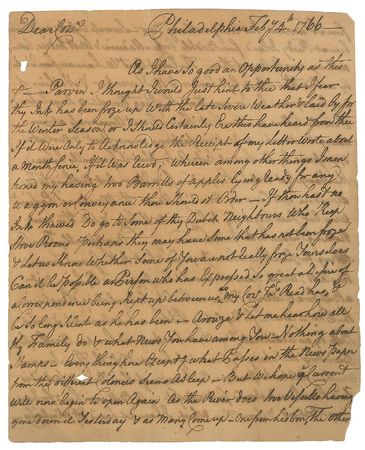 Dear Coz.
Philadelphia Feby 4th 1766
As I have so good an Opportunity as this
Parvin I thought I would Just hint to thee that I fear
thy Ink has been froze up with the late severe Weather & laid by for
the Winter season or I should Certainly Ere this have heard from thee
If it were Only to Acknowledge the Receipt of my Letter Wrote about
a Month since, If it Was Recd, Wherein among other things I men
tioned my having two Barrells of Apples lying ready for any
Waggon or Conveyance thou Should Order — If thou hast no
Ink thawed Do go to Some of thy Dutch Neighbours Who Keep
Stove Rooms Perhaps they may have Some that has not been froze
& let us Know Whether Some of You are not really froze Yourselves
Can it be Possible a Person who has Expressed so great a desire of
a Correspondence being Kept up between us as my Coz. Js. Read has,
be So long Silent as he has been — Arouze & let me hear how all
thy Family do & what News You have among You — Nothing about
Stamps — Every thing here Except what Passes in the News Paper
from the different Colonies seems Asleep — But We hope Current
will now begin to open Again As the River does two Vessells having
gone down it Yesterday & as Many Come up — One from Lisbon, The other